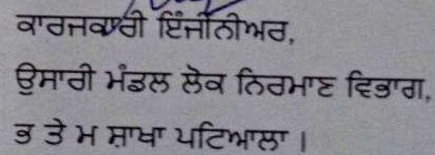 ਕਾਰਜਕਾਰੀ ਇੰਜੀਨੀਅਰ,
ਉਸਾਰੀ ਮੰਡਲ ਲੋਕ ਨਿਰਮਾਣ ਵਿਭਾਗ,
ਭ ਤੇ ਮ ਸ਼ਾਖਾ ਪਟਿਆਲਾ।